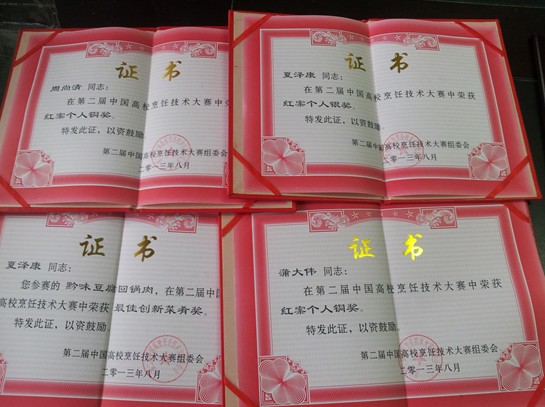 证书
周尚清 同志：
在第二届中国高校烹饪技术大赛中荣获
红案个人铜奖。
特发此证，以资鼓励。
第二届中国高校烹饪技术大赛组委会
二〇一三年八月
证书
夏泽康 同志：
在第二届中国高校烹饪技术大赛中荣获
红案个人银奖。
特发此证，以资鼓励。
第二届中国高校烹饪技术大赛组委会
二〇一三年八月
证书
夏泽康 同志：
您参赛的 黔味豆腐回锅肉，在第二届中国
高校烹饪技术大赛中荣获 最佳创新菜肴奖。
特发此证，以资鼓励。
第二届中国高校烹饪技术大赛组委会
二〇一三年八月
证书
蒲大伟 同志：
在第二届中国高校烹饪技术大赛中荣获
红案个人铜奖。
特发此证，以资鼓励。
第二届中国高校烹饪技术大赛组委会
二〇一三年八月